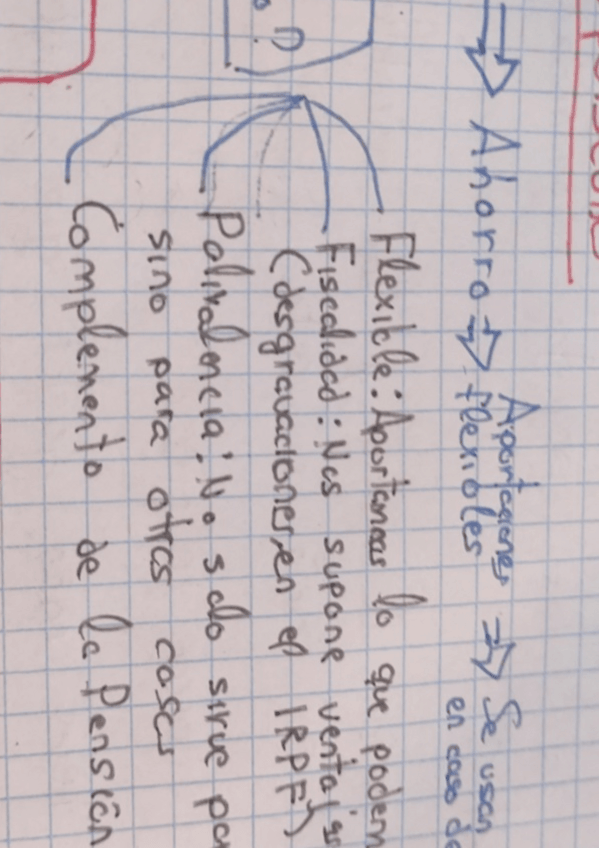 ⇒ Ahorro ⇒ Aportaciones flexibles ⇒ Se usan
en caso de
Flexible: Aportamos lo que podem
Fiscalidad: Nos supone ventajas
(desgravaciones en el IRPF)
Polivalencia: No solo sirve pa
sino para otras cosas
Complemento de la Pensión